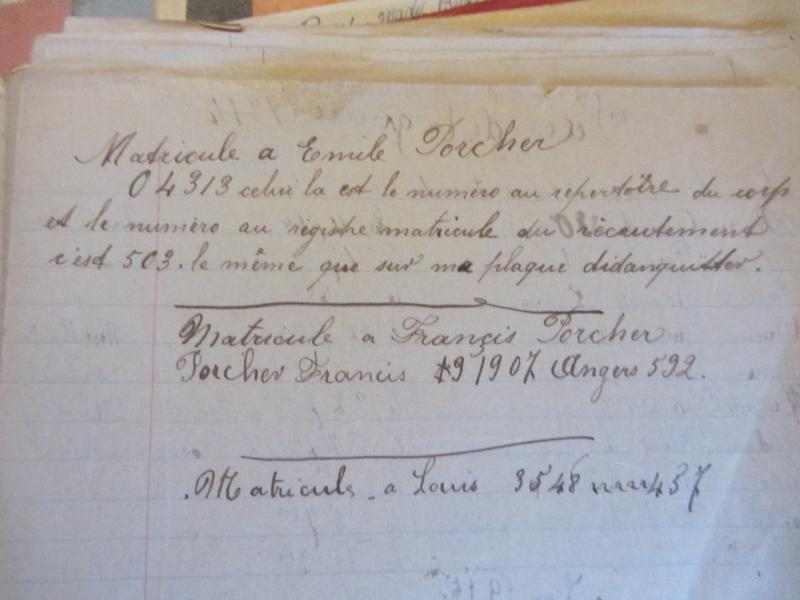 Matricule a Emile Porcher
04313 celui la est le numéro au repertoire du corps
et le numéro au régistre matricule du récrutement
c'est 503. le même que sur ma plaque didanquitter.
Matricule a Françis Porcher
Porcher Francis 1907 Angers 592.
Matricule a Louis 3548 457